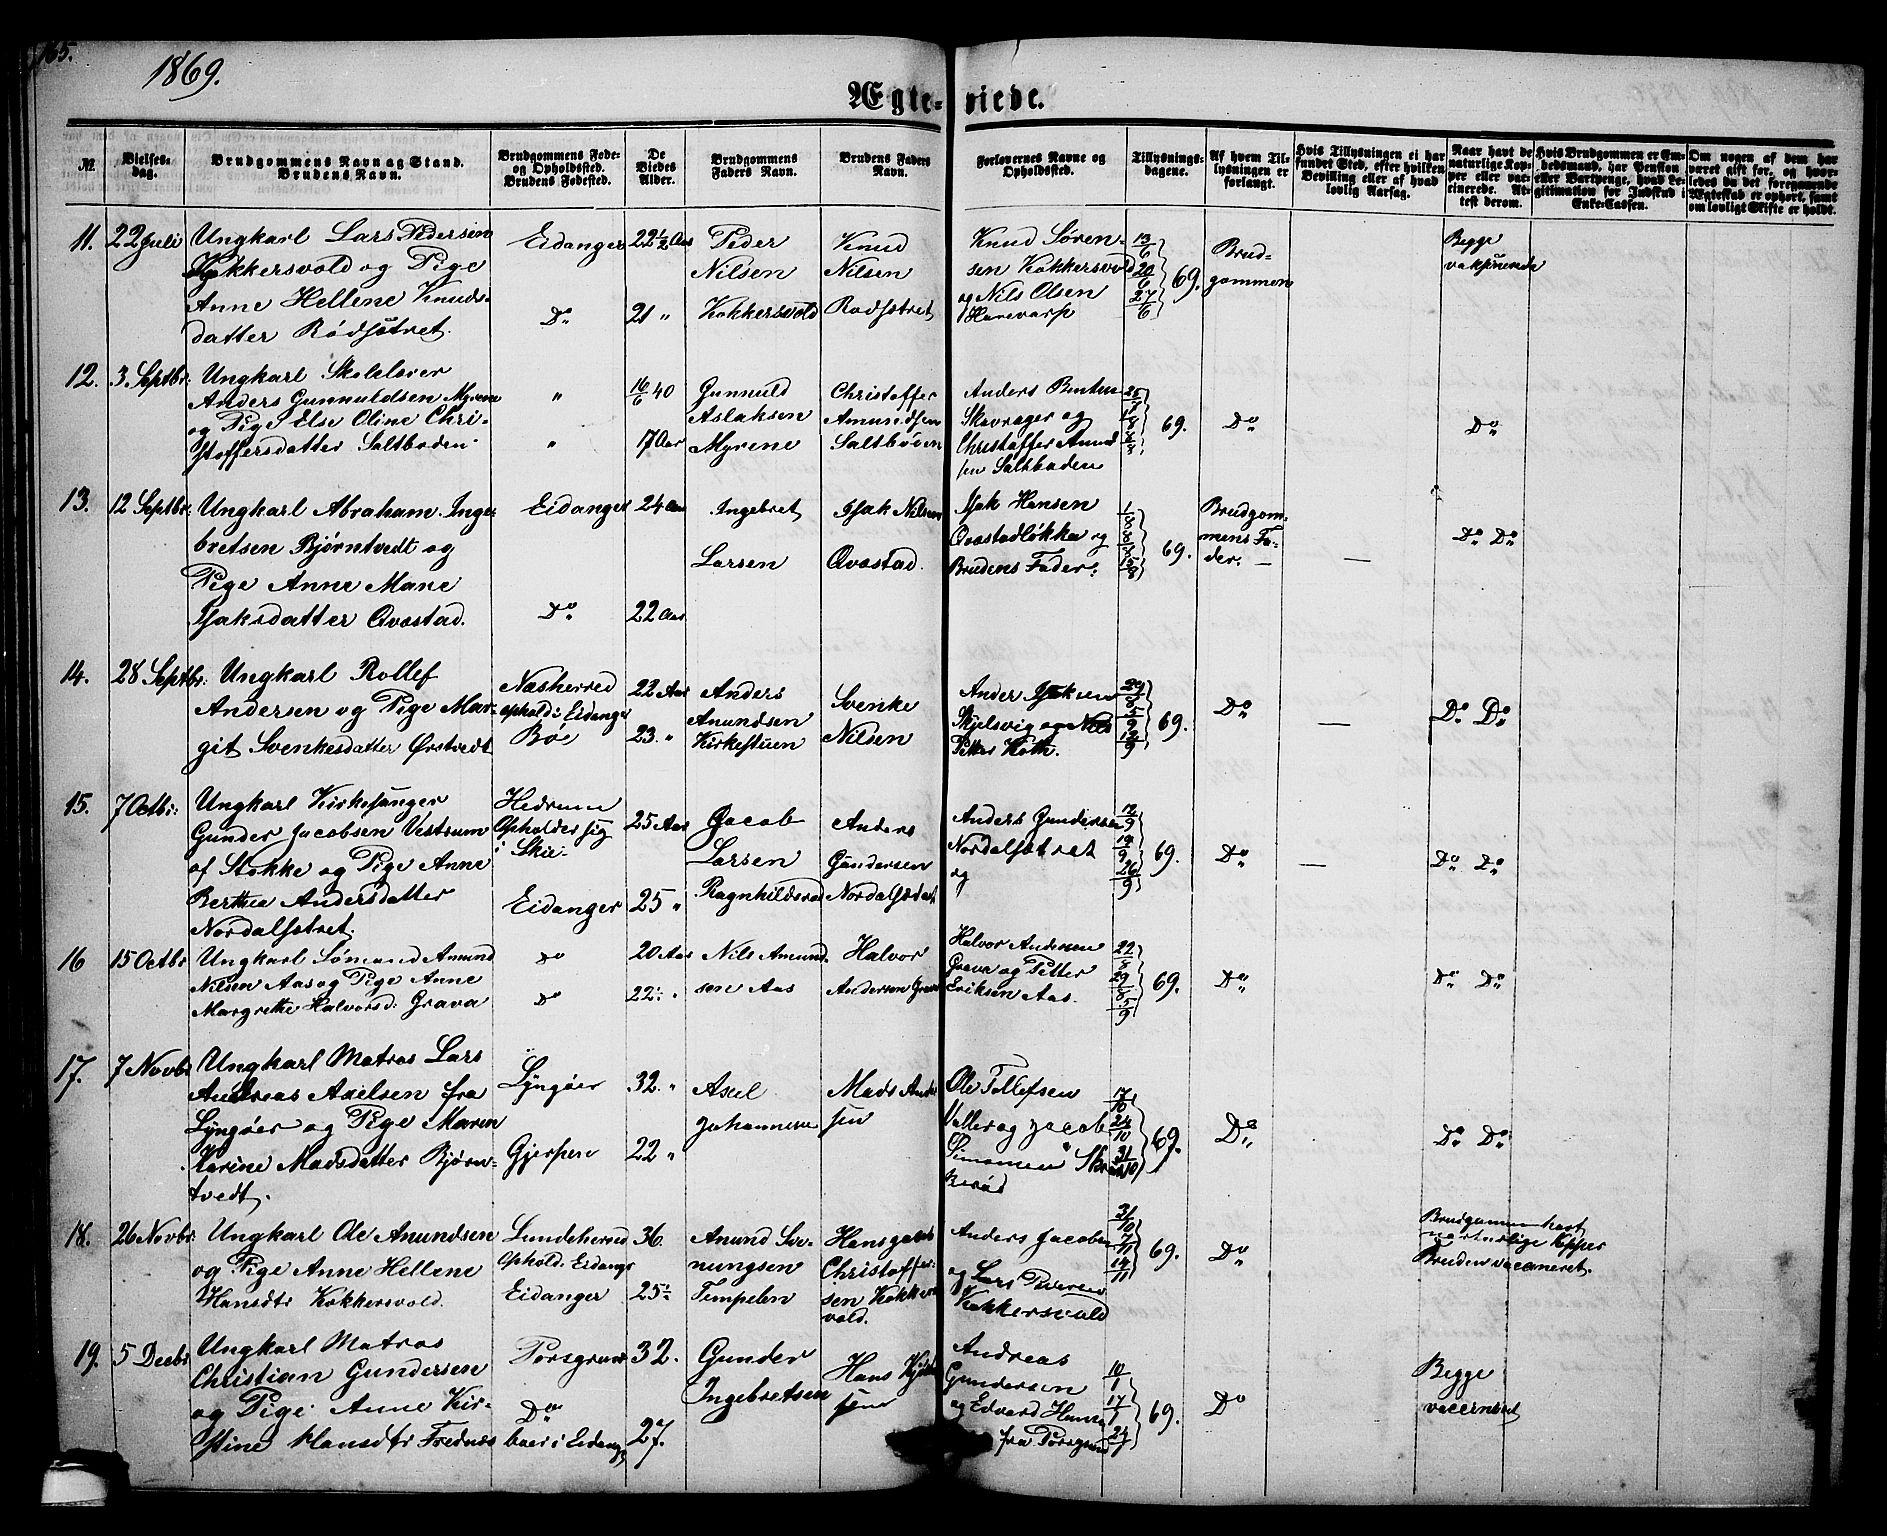 165.
1869.
Ægteviede.
№
Vielsesdag.
Brudgommens Navn og Stand.
Brudens Navn.
Brudgommens Føde-
og Opholdssted.
Brudens Fødested.
De
Viedes
Alder.
Brudgommens
Faders Navn.
Brudens Faders
Navn.
Forlovernes Navne og
Opholdssted.
Tillysnings-
dagene.
Af hvem Til-
lysningen er
forlangt.
Hvis Tillysningen ei har
fundet Sted, efter hvilken
Bevilling eller af hvad
lovlig Aarsag.
Naar havt de
naturlige Kop-
per eller vac-
cinerede. At-
test derom.
Hvis Brudgommen er Em-
bedsmand, har Pension
eller Vartpenge, hvad Le-
gitimation for Indskud i
Enke-Cassen.
Om nogen af dem har
været gift før, og hvor-
ledes da det foregaaende
Ægteskab er ophørt, samt
om lovligt Skifte er holdt.
11. 22 Juli Ungkarl Lars Pedersen Eidanger 22½ Aar Peder Knud Knud Søren- 13/6 Brud- Begge
Kokkersvold og Pige Nilsen Nilsen sen Kokkersvold 20/6 69. gommen vaksinerede
Anne Hellene Knuds- Do 21 " Kokkersvold Rødsætret og Nils Olsen 27/6
datter Rødsætret. Harevarp
12. 3. Septbr: Ungkarl Skolelærer " 16/6 40 Gunnuld Christoffer Anders Bentsen 25/7
Anders Gunnuldsen Myrene Aslaksen Amundsen Skavrager og 1/8 69. Do Do
og Pige Else Oline Chri- " 17 Aar Myrene Saltboden Christoffer Amund 8/8
stoffersdatter Saltboden. sen Saltboden
13. 12 Septbr: Ungkarl Abraham Inge- Eidanger 24 Aar Ingebret Isak Nilsen Isak Hansen 1/8 Brudgom-
bretsen Bjørntvedt og Qvæstadløkka og 8/8 69. mens Fa- Do Do
Pige Anne Marie Larsen Qvæstad. Brudens Fader: 15/8 der. —
Isaksdatter Qvæstad. Do 22 Aar
14. 28 Septbr: Ungkarl Rollef Næsherred 22 Aar Anders Svenke Ander Isaksen 29/8
Andersen og Pige Mar- ophold: Eidanger Anundsen Skjelsvig og Nils 5/9 69. Do — Do Do
git Svenkesdatter Ørstvedt Bøe 23. " Kirkestuen Nilsen Petter Koth. 12/9
15. 7 Octbr: Ungkarl Kirkesanger Hedrum 25 Aar Jacob Anders Anders Gundersen 12/9
Gunder Jacobsen Vestrum Opholder sig Larsen Gundersen Nordalsætret 19/9 69. Do — Do Do
af Stokke og Pige Anne i Skie. og 26/9
Berthea Andersdatter Eidanger 25 " Ragnhildsrød Nordalsædret
Nordalsætret.
16 15 Octbr Ungkarl Sømand Amund Do 20 Aar Nils Amund- Halvor Halvor Andersen 22/8
Nilsen Aas og Pige Anne Grava og Petter 29/8 69. Do Do Do
Margrethe Halvorsd: Grava Do 22: " sen Aas Andersen Grava Eriksen Aas. 5/9
17. 7 Novbr Ungkarl Matros Lars Lyngøer 32. " Axel Mads Ander Ole Tollefsen 17/10
Andreas Axelsen fra Johannesen sen Valler og Jacob 24/10 69. Do Do Do
Lyngøer og Pige Maren Gjerpen 22 " Simonsen 31/10
Karine Madsdatter Bjørn-
tvedt.
18. 26 Novbr: Ungkarl Ole Anundsen Lundeherred 36. Anund Sve- Hans Anders Jacobsen 31/10 Brudgommen havt
og Pige Anne Hellene Ophold. Eidanger nungsen Christoffer- og Lars 7/11 69. Do naturlige Kopper
Hansdtr Kokkersvold. Eidanger 25: Tempelen sen Kokkers- Kokkersvold 14/11 Bruden vaccineret.
vold.
19. 5 Decbr Ungkarl Matros Porsgrund 32. Gunder Hans Andreas 10/1 Begge
Christian Gundersen Ingebretsen Gundersen 17/1 69. Do vaccineret
og Pige Anne Kir- Do og Edvard Hansen 24/1
stine Hansdtr Frednæs boer i Eidanger 27. fra Porsgrund